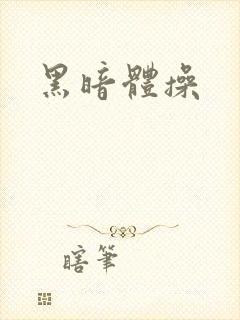 黑暗體操
瞎筆